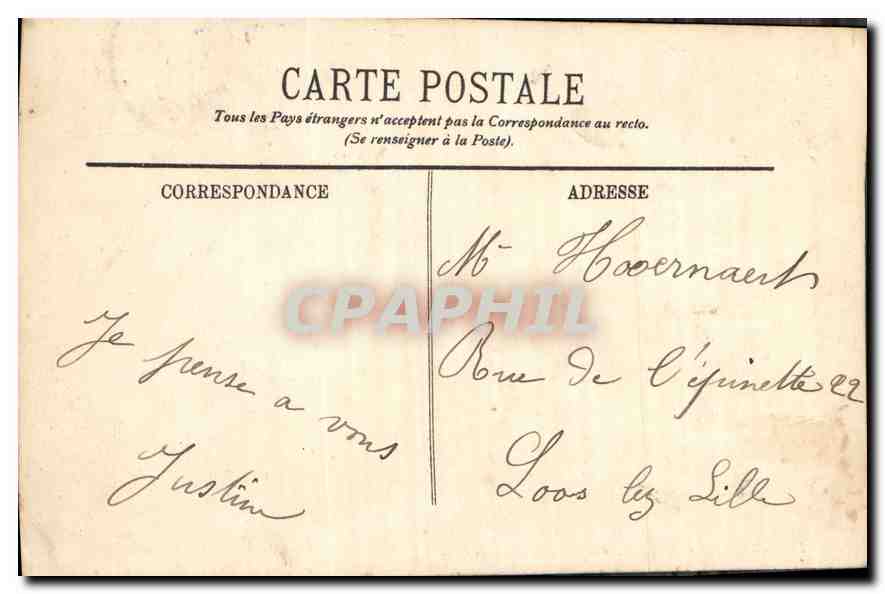 CARTE POSTALE
Tous les Pays étrangers n'acceptent pas la Correspondance au recto.
(Se renseigner à la Poste).
CORRESPONDANCE
Je pense a vous
Justine
ADRESSE
Mr Hooernaert
Rue de l'épinette 22
Loos lez Lille
CPAPHIL